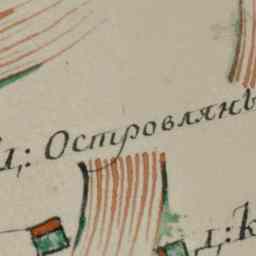 д: Островляны
д: К